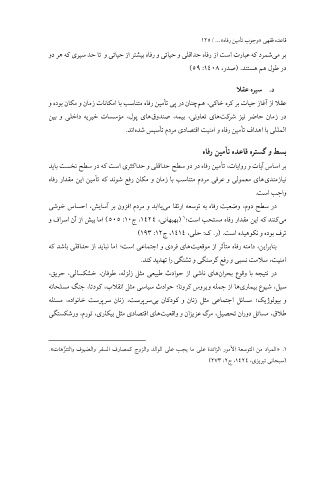 قاعده فقهی «وجوب تأمین رفاه»... / ۱۲۵
بر می‌شمرد که عبارت است از رفاه حداقلی و حیاتی و رفاه بیشتر از حیاتی و تا حد سیری که هر دو
در طول هم هستند. (صدر، ۱۴۰۸: ۵۹)
د. سیره عقلا
عقلا از آغاز حیات بر کره خاکی، هم‌چنان در پی تأمین رفاه متناسب با امکانات زمان و مکان بوده و
در زمان حاضر نیز شرکت‌های تعاونی، بیمه، صندوق‌های پول، مؤسسات خیریه داخلی و بین
المللی با اهداف تأمین رفاه و امنیت اقتصادی مردم تأسیس شده‌اند.
بسط و گستره قاعده تأمین رفاه
بر اساس آیات و روایات، تأمین رفاه در دو سطح حداقلی و حداکثری است که در سطح نخست باید
نیازمندی‌های معمولی و عرفی مردم متناسب با زمان و مکان رفع شوند که تأمین این مقدار رفاه
واجب است.
در سطح دوم، وضعیت رفاه به توسعه ارتقا می‌یابد و مردم افزون بر آسایش، احساس خوشی
می‌کنند که این مقدار رفاه مستحب است؛۱ (بهبهانی، ۱۴۲۴، ج۱۰: ۵۰۵) اما بیش از آن اسراف و
ترف بوده و نکوهیده است. (ر. ک: حلی، ۱۴۱۴، ج۱۲: ۱۹۳)
بنابراین، دامنه رفاه متأثر از موقعیت‌های فردی و اجتماعی است؛ اما نباید از حداقلی باشد که
امنیت، سلامت نسبی و رفع گرسنگی و تشنگی را تهدید کند.
در نتیجه با وقوع بحران‌های ناشی از حوادث طبیعی مثل زلزله، طوفان، خشکسالی، حریق،
سیل، شیوع بیماری‌ها از جمله ویروس کرونا؛ حوادث سیاسی مثل انقلاب، کودتا، جنگ مسلحانه
و بیولوژیک؛ مسائل اجتماعی مثل زنان و کودکان بی‌سرپرست، زنان سرپرست خانواده، مسئله
طلاق، مسائل دوران تحصیل، مرگ عزیزان و واقعیت‌های اقتصادی مثل بیکاری، تورم، ورشکستگی
۱. «المراد من التوسعة الأمور الزائدة علی ما یجب علی الوالد والزوج کمصارف السفر والضیوف والنزّهات».
(سبحانی تبریزی، ۱۴۲۴، ج۲: ۲۷۳)